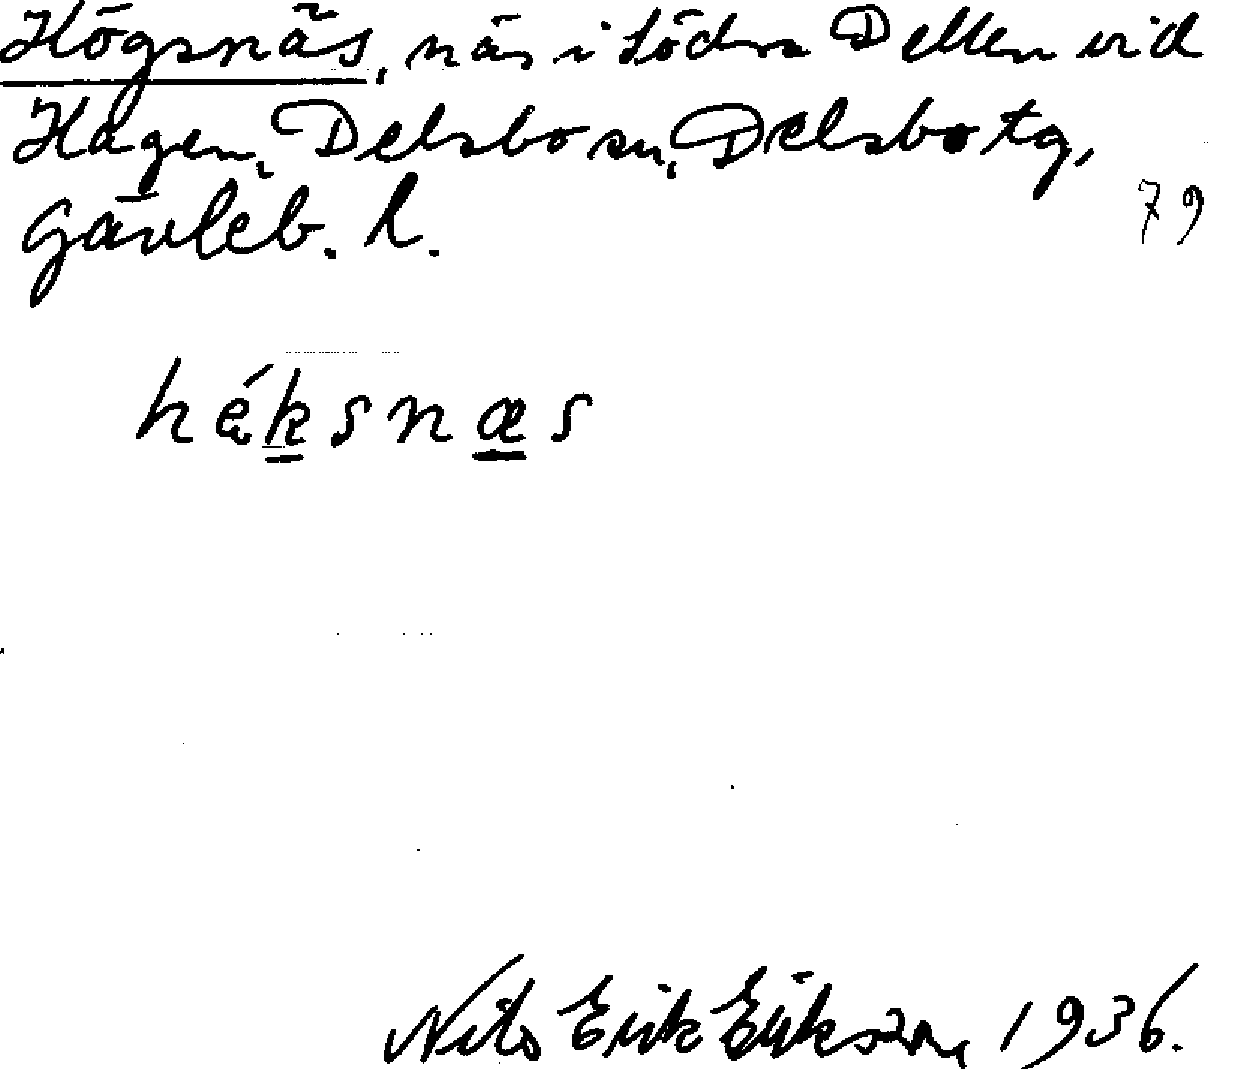 Högsnäs, näs i Södra Dellen vid
Hagen, Delsbo sn, Delsbo tg,
Gävleb. l.
79
héksnæs
Nils Erik Eriksson, 1936.